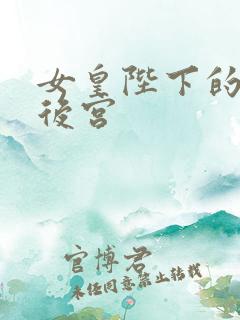 女皇陛下的
後宮
官博君
未经同意禁止转载